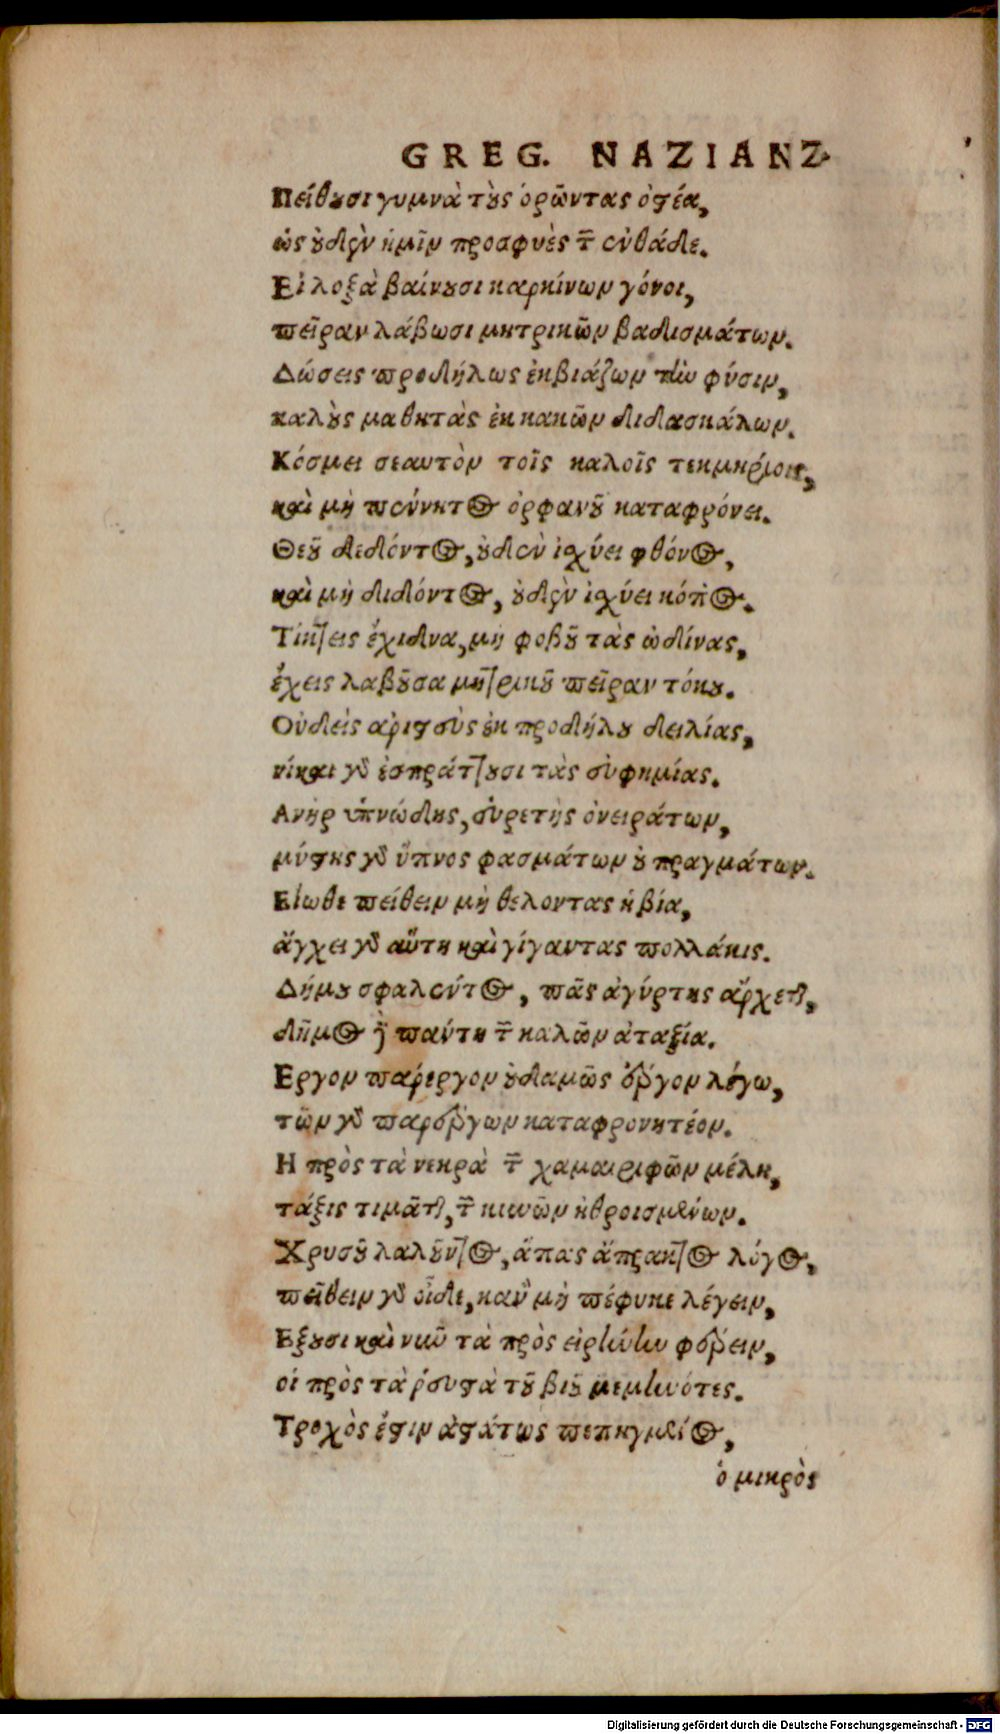 GREG. NAZIANZ.
Πείθουσι γυμνὰ τοὺς ὁρῶντας ὀστέα,
ὡς οὐδὲν ἡμῖν προσφυὲς τῶν ἐνθάδε.
Εἰ λοξὰ βαίνουσι καρκίνων γόνοι,
πεῖραν λάβωσι μητρικῶν βαδισμάτων.
Δώσεις προδήλως ἐκβιάζων τὴν φύσιν,
καλοὺς μαθητὰς ἐκ κακῶν διδασκάλων.
Κόσμει σεαυτὸν τοῖς καλοῖς τεκμηρίοις,
καὶ μὴ πένητος ὀρφανοῦ καταφρόνει.
Θεοῦ διδόντος, οὐδὲν ἰσχύει φθόνος,
καὶ μὴ διδόντος, οὐδὲν ἰσχύει κόπος.
Τίκτεις ἔχιδνα, μὴ φοβοῦ τὰς ὠδίνας,
ἔχεις λαβοῦσα μητρικοῦ πεῖραν τόκου.
Οὐδεὶς ἀριστεὺς ἐκ προδήλου δειλίας,
νίκαι γὰρ ἐσπράττουσι τὰς εὐφημίας.
Ανὴρ ὑπνώδης, εὑρετὴς ὀνειράτων,
μύστης γὰρ ὕπνος φασμάτων οὐ πραγμάτων.
Είωθε πείθειν μὴ θελοντας ἡ βία,
ἄγχει γὰρ αὕτη καὶ γίγαντας πολλάκις.
Δήμου σφαλέντος, πᾶς ἀγύρτης ἄρχεται,
δῆμος γὰρ παύτη τῶν καλῶν ἀταξία.
Εργον πάρεργον οὐδαμῶς ἔργον λέγω,
τῶν γὰρ παρέργων καταφρονητέον.
Η πρὸς τὰ νεκρὰ τῶν χαμαιριφῶν μέλη,
τάξις τιμᾶται, τῶν κυνῶν ἠθροισμένων.
Χρυσοῦ λαλοῦντος, ἅπας ἄπρακτος λόγος,
πείθειν γὰρ οἶδε, κἂν μὴ πέφυκε λέγειν,
Εξουσι καὶ νῦν τὰ πρὸς εἰρήνην φέρειν,
οἱ πρὸς τὰ ῥευστὰ τοῦ βίου μεμηνότες.
Τροχὸς ἔστιν ἀστάτως πεπηγμένος,
ὁ μικρὸς
Digitalisierung gefördert durch die Deutsche Forschungsgemeinschaft - DFG